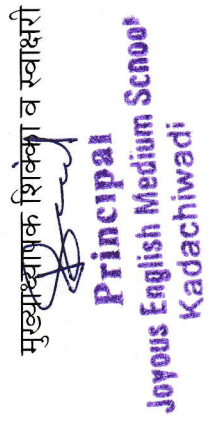 मुख्याध्यापक शिक्का व स्वाक्षरी
Principal
Joyous English Medium School
Kadachiwadi